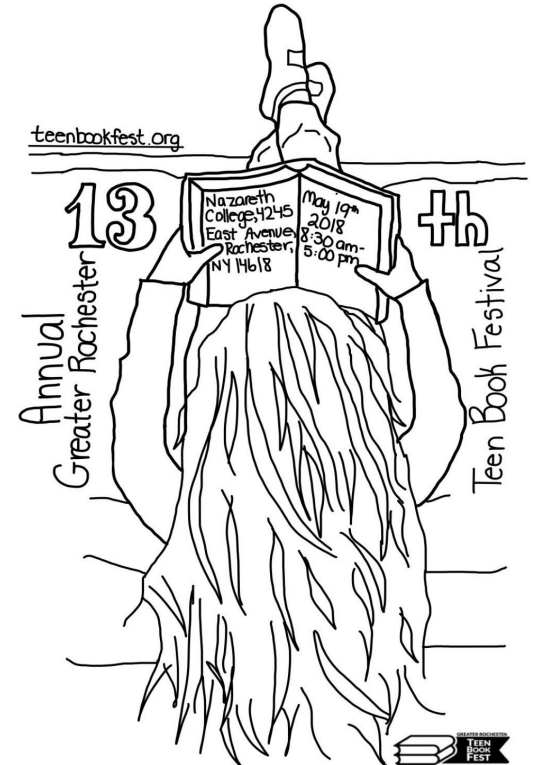 teenbookfest.org
13
th
Annual
Greater Rochester
Teen Book Festival
Nazareth
College, 4245
East Avenue,
Rochester,
NY 14618
May 19th
2018
8:30 am-
5:00 pm
GREATER ROCHESTER
TEEN
BOOK
FEST